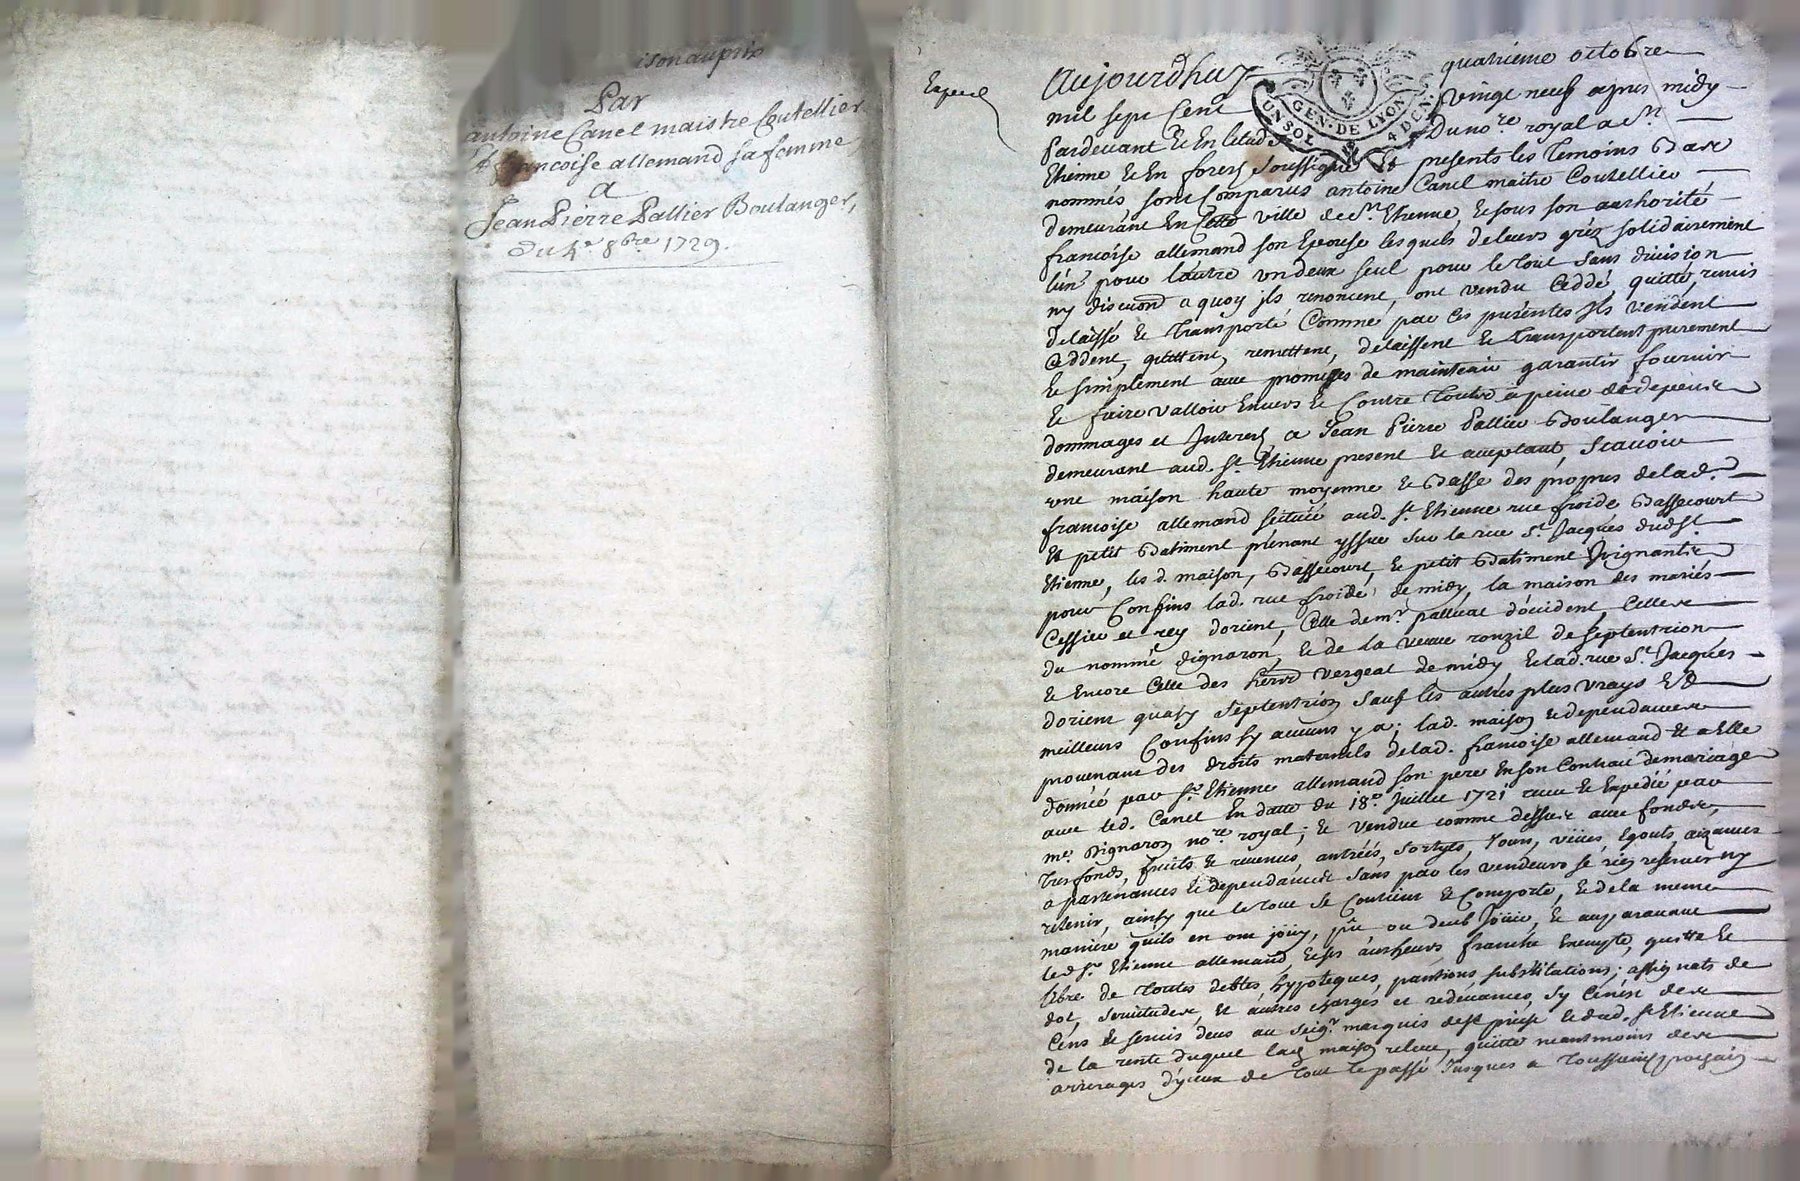 ison au prix
Par
antoine Canel maistre Coutellier
& francoise allemand sa femme,
A
Jean Pierre Pallier Boulanger,
du 4e. 8bre 1729.
Expedié
Aujourdhuy quatrieme octobre
mil sept Cent vingt neuf apres midy
Pardevant le no.re royal a St.
Etienne & En forest soussigné et presents les temoins Bas
nommés sont Comparus antoine Canel maitre Coutellier
demeurant En Cette ville de St. Etienne, & sous son authorité
francoise allemand son Epouse lesquels de leurs grés solidairement
l'un pour l'autre un deux seul pour le tout sans division
ny discuond a quoy ils renoncent, ont vendu Ceddé, quitté, remis
delaissé & transporté Comme par Ces presentes Ils vendent
Ceddent, quittent, remettent, delaissent & transportent purement
& simplement avec promesses de maintenir garantir fournir
& faire valloir Envers & Contre toutes a peine de depens
dommages et Interest a Jean Pierre Pallier Boulanger
demeurant aud. St. Etienne present & acceptant, Scavoir
une maison haute moyenne & Basse des propres de lad.
francoise allemand scituée aud. St. Etienne rue froide Bassecourt
& petit Batiment prenant yssue sur la rue St. Jacques dud. St.
Etienne, les d. maison, Bassecourt, & petit Batiment Joignants
pour Confins lad. rue froide de midy, la maison des mariés
Cessier et rey dorient, Celle de mr. palluat doccident, Celle
du nommé vignaron, & de la veuve ronzil de septentrion
& Encore Celle des herrs vergeat de midy & lad. rue St. Jacques
dorient quasy septentrion sauf les autres plus vrays &
meilleurs Confins sy aucuns y a; lad. maison & dependances
provenant des droits maternels de lad. francoise allemand & a Elle
donnée par sr. Etienne allemand son pere En son Contract de mariage
avec led. Canel En datte du 18e. Juillet 1721 receu & Expedié par
me. vignaron no.re royal; & vendue comme dessus avec fonds,
tresfonds, fruits & revenus, antrées, sortyes, Jours, veües, Egouts, aizances
apartenances & dependances sans par les vendeurs se rien reserver ny
retenir, ainsy que le tout se Contient & Comporte, & de la meme
maniere quils en ont jouy, pû ou deub Jouir, & auparavant
led. sr. Etienne allemand & ses autheurs franche Exempte, quitte &
libre de toutes debtes, hypoteques, pantions, substitutions, assignats de
dot, servitudes, & autres charges et redevances, sy Cenest des
Cens & servis deus au seigr. marquis de St. priest & dud. St. Etienne
de la rente duquel lad. maison releve, quitte neantmoins des
arrerages d'yceux de tout le passé Jusques a toussaint prochain
GEN. DE LYON
UN SOL 4 DEN.